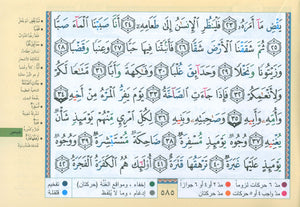 يَقْضِ مَآ أَمَرَهُۥ ﴿٢٣﴾ فَلْيَنظُرِ ٱلْإِنسَٰنُ إِلَىٰ طَعَامِهِۦٓ ﴿٢٤﴾ أَنَّا صَبَبْنَا ٱلْمَآءَ صَبًّا
﴿٢٥﴾ ثُمَّ شَقَقْنَا ٱلْأَرْضَ شَقًّا ﴿٢٦﴾ فَأَنۢبَتْنَا فِيهَا حَبًّا ﴿٢٧﴾ وَعِنَبًا وَقَضْبًا ﴿٢٨﴾
وَزَيْتُونًا وَنَخْلًا ﴿٢٩﴾ وَحَدَآئِقَ غُلْبًا ﴿٣٠﴾ وَفَٰكِهَةً وَأَبًّا ﴿٣١﴾ مَّتَٰعًا لَّكُمْ
وَلِأَنْعَٰمِكُمْ ﴿٣٢﴾ فَإِذَا جَآءَتِ ٱلصَّآخَّةُ ﴿٣٣﴾ يَوْمَ يَفِرُّ ٱلْمَرْءُ مِنْ أَخِيهِ ﴿٣٤﴾
وَأُمِّهِۦ وَأَبِيهِ ﴿٣٥﴾ وَصَٰحِبَتِهِۦ وَبَنِيهِ ﴿٣٦﴾ لِكُلِّ ٱمْرِئٍ مِّنْهُمْ يَوْمَئِذٍ شَأْنٌ
يُغْنِيهِ ﴿٣٧﴾ وُجُوهٌ يَوْمَئِذٍ مُّسْفِرَةٌ ﴿٣٨﴾ ضَاحِكَةٌ مُّسْتَبْشِرَةٌ ﴿٣٩﴾ وَوُجُوهٌ
يَوْمَئِذٍ عَلَيْهَا غَبَرَةٌ ﴿٤٠﴾ تَرْهَقُهَا قَتَرَةٌ ﴿٤١﴾ أُو۟لَٰٓئِكَ هُمُ ٱلْكَفَرَةُ ٱلْفَجَرَةُ ﴿٤٢﴾
مدّ ٦ حركات لزوماً مدّ ٢ أو ٤ أو ٦ جوازاً
مدّ واجب ٤ أو ٥ حركات مدّ حركتان
٥٨٥
إخفاء، ومواقع الغنّة (حركتان)
إدغام، وما لا يُلفظ
تفخيم
قلقلة